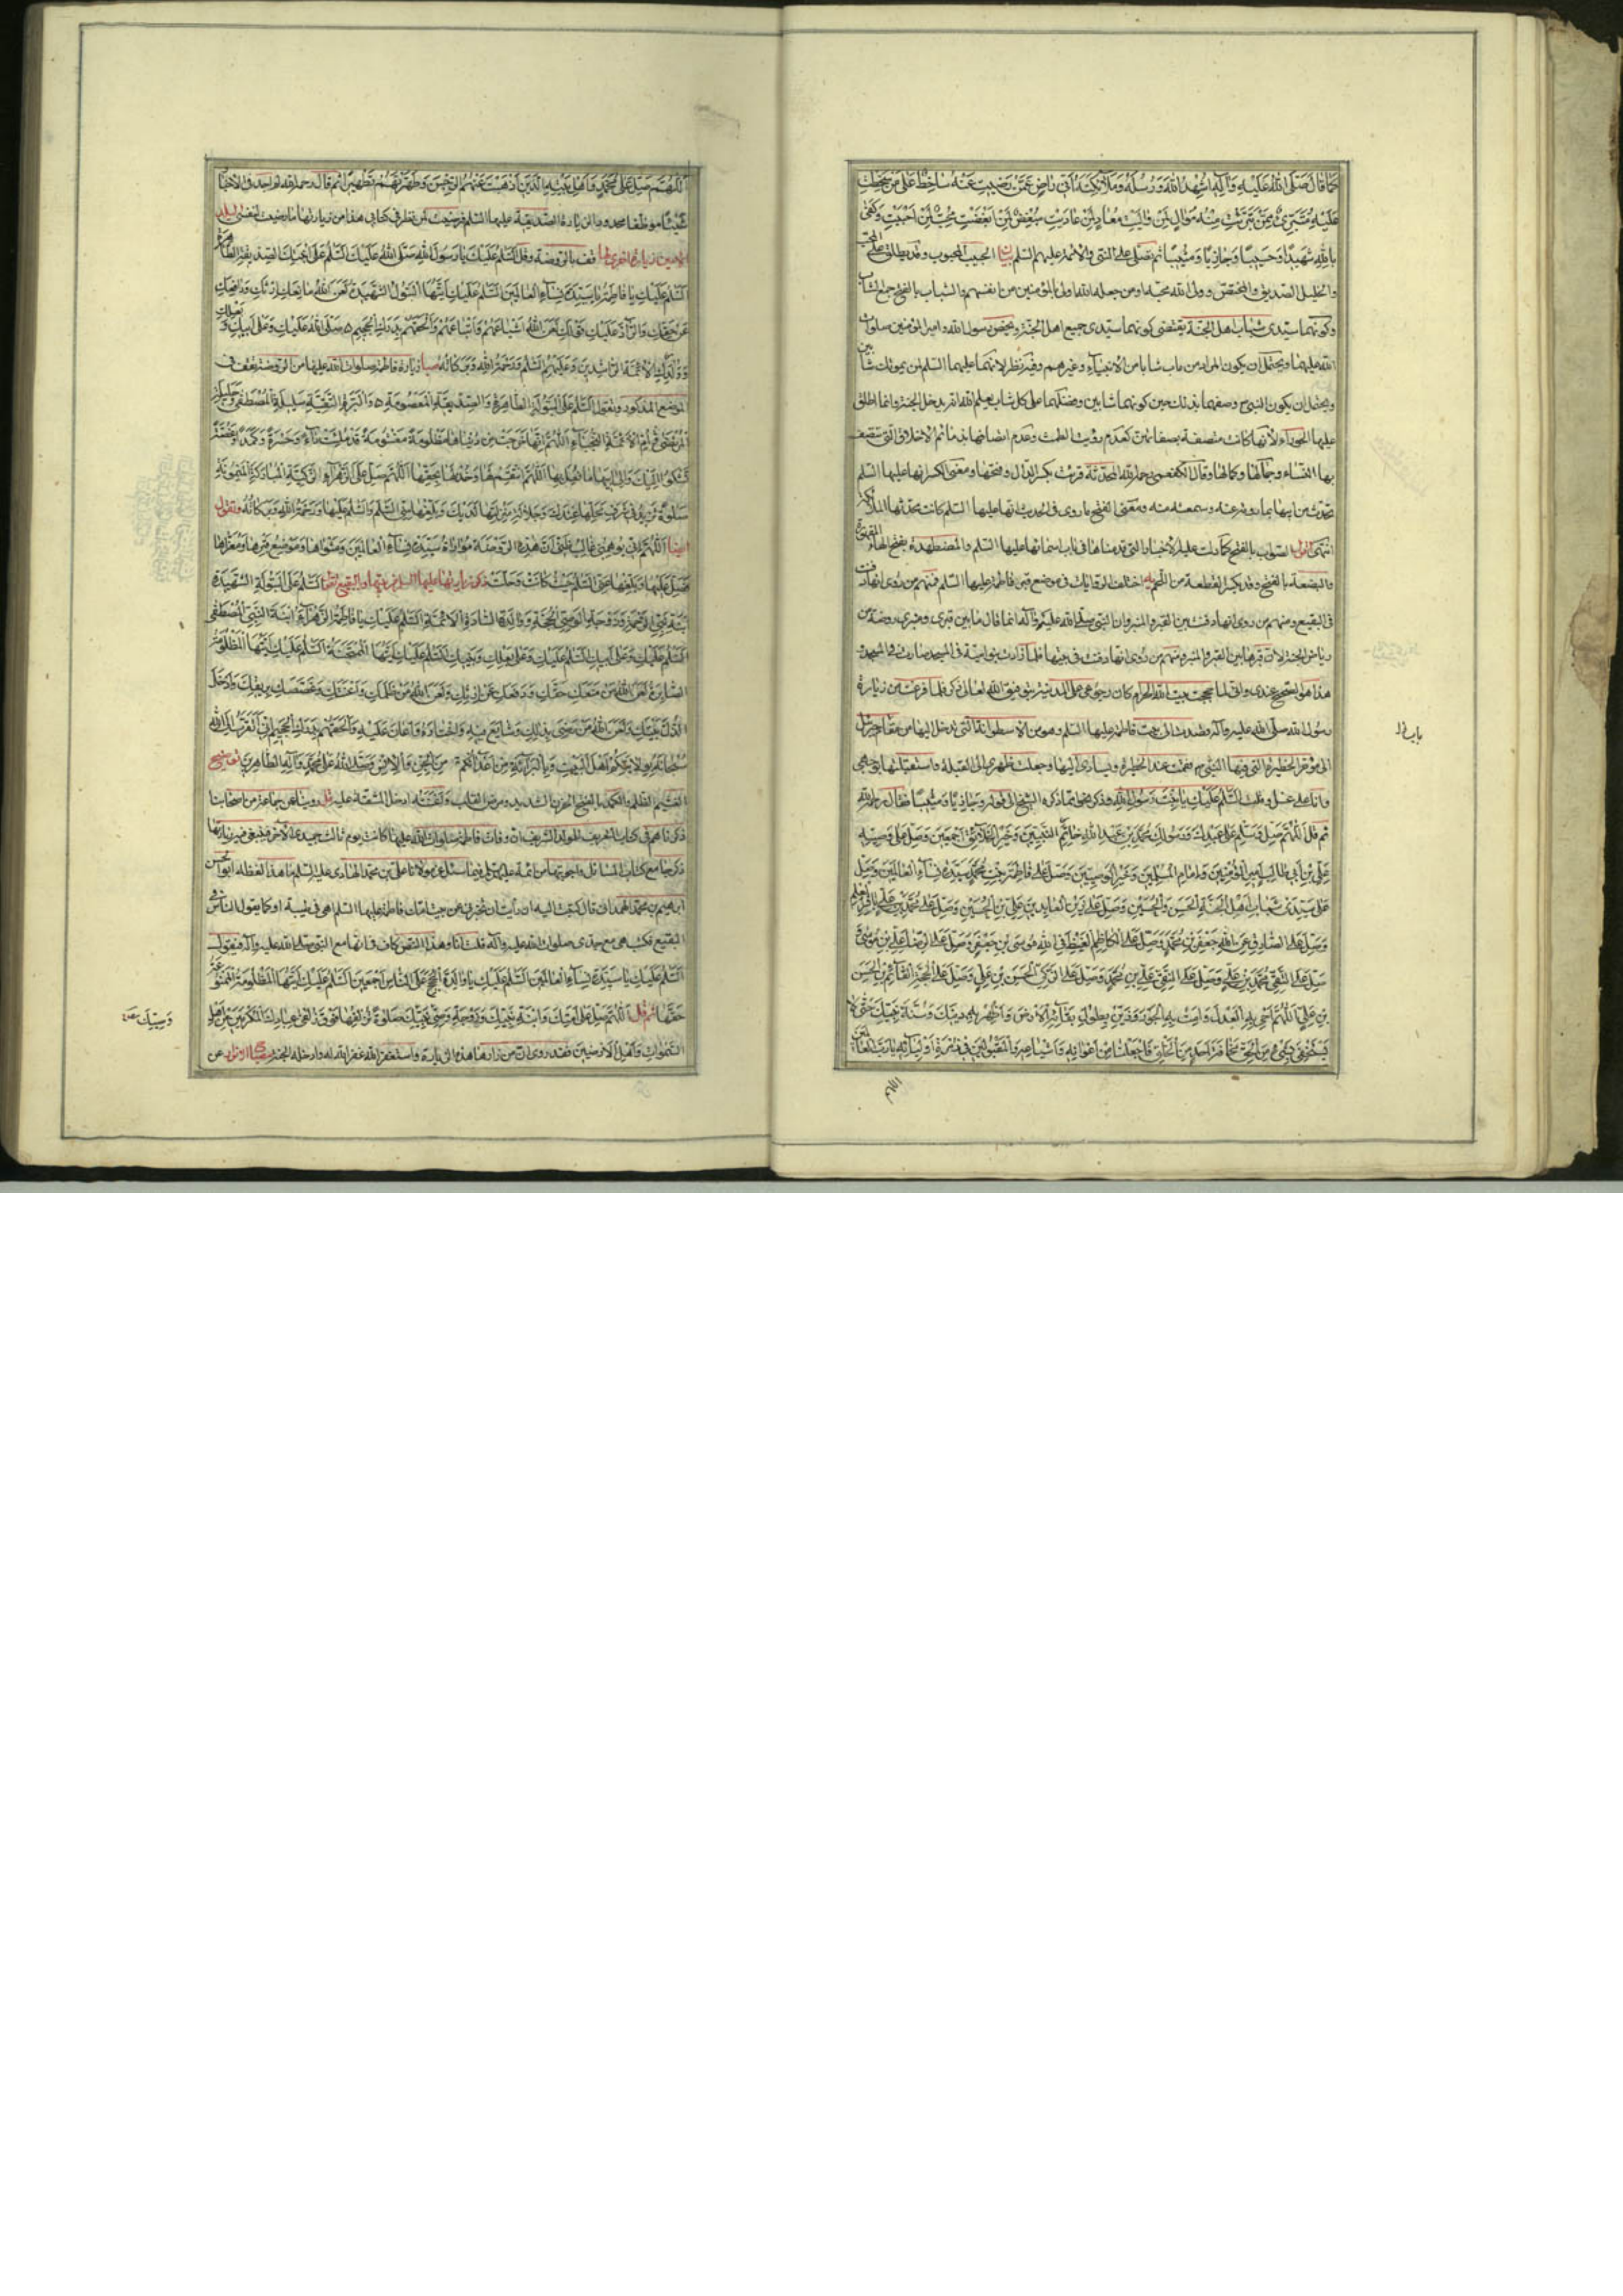 كما قال صلى الله عليه وآله اشهد الله ورسله وملائكته اني راض عمن رضيت عنه ساخط على من سخطت
عليه متبرئ ممن تبرئت منه موال لمن واليت معاد لمن عاديت مبغض لمن ابغضت محب لمن احببت وكفى
بالله شهيدا وحسيبا وجازيا ومثيبا ثم تصلي على النبي والائمة عليهم السلم بيان الحبيب المحبوب وقد يطلق على المحب
والخليل الصديق والمختص وولي الله محبه او من جعله الله اولى بالمؤمنين من انفسهم والشباب بالفتح جمع الشاب
وكونهما سيدي شباب اهل الجنة يقتضي كونهما سيدي جميع اهل الجنة وتخص رسول الله وامير المؤمنين صلوات
الله عليهما ويحتمل ان يكون المراد من مات شابا من الانبياء وغيرهم وفيه نظر لانهما عليهما السلم لم يموتا شابين
ويحتمل ان يكون النبي ص وصفهما بذلك حين كونهما شابين وفضلهما على كل شاب يعلم الله انه يدخل الجنة وانما اطلق
عليها الحوراء لانها كانت متصفة بصفاتهن كعدم رؤية الطمث وعدم
بها النساء وجمالها وكمالها وقال الكفعمي رحمه الله المحدثة قرئت بكسر الدال وفتحها ومعنى الكسر انها عليها السلم
تحدث عن ابيها بما روته عنه وسمعته منه ومعنى الفتح ما روى في الحديث انها عليها السلم كانت تحدثها الملائكة
انتهى اقول الصواب بالفتح كما دلت عليه الاخبار التي قدمناها في باب اسمائها عليها السلم والمضطهدة بفتح الهاء المقهورة
والبضعة بالفتح وقد يكسر القطعة من اللحم يه اختلف الروايات في موضع قبر فاطمة عليها السلم فمنهم من روى انها دفنت
في البقيع ومنهم من روى انها دفنت بين القبر والمنبر وان النبي صلى الله عليه وآله انما قال ما بين قبري ومنبري روضة من
رياض الجنة لان قبرها بين القبر والمنبر ومنهم من روى انها دفنت في بيتها فلما زادت بنو امية في المسجد صارت في المسجد و
هذا هو الصحيح عندي واني لما حججت بيت الله الحرام كان رجوعي على المدينة بتوفيق الله تعالى ذكره فلما فرغت من زيارة
رسول الله صلى الله عليه وآله قصدت الى بيت فاطمة عليها السلم وهو من الاسطوانة التي تدخل اليها من مقام جبرئيل
الى مؤخر الحظيرة التي فيها النبي ص فقمت عند الحظيرة ويساري اليها وجعلت ظهري الى القبلة واستقبلتها بوجهي
وانا على غسل وقلت السلم عليك يا بنت رسول الله وذكر نحوا مما ذكره الشيخ الى قوله وجازيا ومثيبا فقال رحمه الله
ثم قل اللهم صل وسلم على عبدك ورسولك محمد بن عبد الله خاتم النبيين وخير الخلائق اجمعين وصل على وصيه
علي بن ابي طالب امير المؤمنين وامام المسلمين وخير الوصيين وصل على فاطمة بنت محمد سيدة نساء العالمين وصل
على سيدي شباب اهل الجنة الحسن والحسين وصل على زين العابدين علي بن الحسين وصل على محمد بن علي باقر العلم
وصل على الصادق عن الله جعفر بن محمد وصل على الكاظم الغيظ في الله موسى بن جعفر وصل على الرضا علي بن موسى و
صل على التقي محمد بن علي وصل على النقي علي بن محمد وصل على الزكي الحسن بن علي وصل على الحجة القائم بن الحسن
بن علي اللهم احي به العدل وامت به الجور وزين بطول بقائه الارض واظهر به دينك وسنة نبيك حتى لا
يستخفي بشيء من الحق مخافة احد من الخلق واجعلنا من اعوانه واشياعه والمقبولين في زمرة اوليائه يا رب العالمين
اللهم
اللهم صل على محمد واهل بيته الذين اذهبت عنهم الرجس وطهرتهم تطهيرا ثم قال رحمه الله لم اجد في الاخبار
شيئا موظفا محدودا لزيارة الصديقة عليها السلم فرضيت لمن نظر في كتابي هذا من زيارتها ما رضيت لنفسي
زيارة اخرى لها قف بالروضة وقل السلم عليك يا رسول الله صلى الله عليك السلم على ابنتك الصديقة الطاهرة
السلم عليك يا فاطمة يا سيدة نساء العالمين السلم عليك ايتها البتول الشهيدة لعن الله مانعك ارثك ودافعك
عن حقك والراد عليك قولك لعن الله اشياعهم واتباعهم والحقهم بدرك الجحيم صلى الله عليك وعلى ابيك وبعلك
وولدك الائمة الراشدين وعليهم السلم ورحمة الله وبركاته صبا زيارة فاطمة صلوات الله عليها من الروضة تقف في
الموضع المذكور وتقول السلم على البتول الطاهرة والصديقة المعصومة والبرة التقية سليلة المصطفى وحليلة
المرتضى وام الائمة النجباء اللهم انها خرجت من دنياها مظلومة مغشومة قد ملئت داء وحسرة وكمدا وغصة
تشكو اليك والى ابيها ما فعل بها اللهم انتقم لها وخذ لها بحقها اللهم صل على الزهراء الزكية المباركة الميمونة
صلوة تزيد في شرف محلها عندك وجلالة منزلتها لديك وبلغها مني السلم والسلم عليها ورحمة الله وبركاته وتقول
ايضا اللهم اني يوهمني غالب ظني ان هذه الروضة مواراة سيدة نساء العالمين ومثواها وموضع قبرها ومغزاها
فصل عليها وبلغها عني السلم حيث كانت وحلت ذكر زيارتها عليها السلم في بيتها او البقيع تقول السلم على البتول الشهيدة
ابنة نبي الرحمة وزوجة الوصي الحجة ووالدة السادة الائمة السلم عليك يا فاطمة الزهراء ابنة النبي المصطفى
السلم عليك وعلى ابيك السلم عليك وعلى بعلك وبنيك السلم عليك ايتها الممتحنة السلم عليك ايتها المظلومة
الصابرة لعن الله من منعك حقك ودفعك عن ارثك ولعن الله من ظلمك واعنتك وغصصك بريقك وادخل
الذل بيتك ولعن الله من رضي بذلك وشايع فيه واختاره واعان عليه والحقهم بدرك الجحيم اني اتقرب الى الله
سبحانه بولايتكم اهل البيت وبالبراءة من اعدائكم من الجن والانس وصلى الله على محمد وآله الطاهرين
الغشم الظلم والكمد بالفتح الحزن الشديد ومرض القلب واعنته ادخل المشقة عليه قل روينا عن جماعة من اصحابنا
ذكرناهم في كتاب التعريف للمولد الشريف ان وفات فاطمة صلوات الله عليها كانت يوم ثالث جمادى الآخرة فينبغي زيارتها
ذكر جامع كتاب المسائل واجوبتها من الائمة عليهم السلم فيما سئل عن مولانا علي بن محمد الهادي عليه السلم ما هذا لفظه ابو الحسن
ابرهيم بن محمد الهمداني قال كتبت اليه ان رايت ان تخبرني عن بيت امك فاطمة عليها السلم اهي في طيبة او كما يقول الناس في
البقيع فكتب هي مع جدي صلوات الله عليه وآله قلت انا وهذا النص كاف في انها مع النبي صلى الله عليه وآله فيقول
السلم عليك يا سيدة نساء العالمين السلم عليك يا والدة الحجج على الناس اجمعين السلم عليك ايتها المظلومة الممنوعة
حقها ثم قل اللهم صل على امتك وابنة نبيك وزوجة وصي نبيك صلوة تزلفها فوق زلفى عبادك المكرمين من اهل
السموات واهل الارضين فقد روي ان من زارها هذه الزيارة واستغفر الله غفر الله له وادخله الجنة